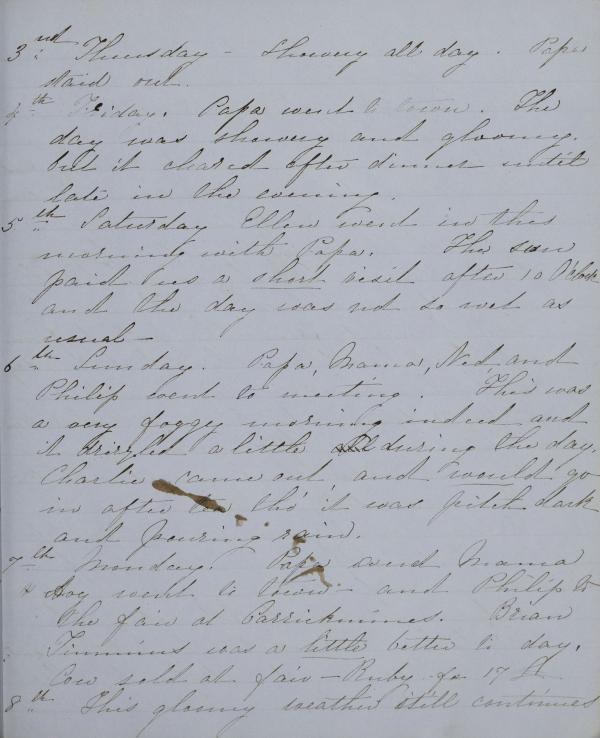 3rd Thursday - Showery all day. Papa
staid out.
4th Friday. Papa went to town. The
day was showery and gloomy.
but it cleared after dinner until
late in the evening.
5th Saturday Ellen went in this
morning with Papa. The sun
paid us a short visit after 10 O'clock
and the day was not so wet as
usual -
6th Sunday. Papa, Mama, Ned, and
Philip went to meeting. This was
a very foggy morning indeed and
it drizzled a little during the day.
Charlie came out, and would go
in after tea tho' it was pitch dark
and pouring rain.
7th Monday. Papa and Mama
& Avy went to town - and Philip to
the fair at Carrickmines. Brian
Timmins was a little better to day.
Cow sold at fair - Ruby for 17 £
8th This gloomy weather still continues